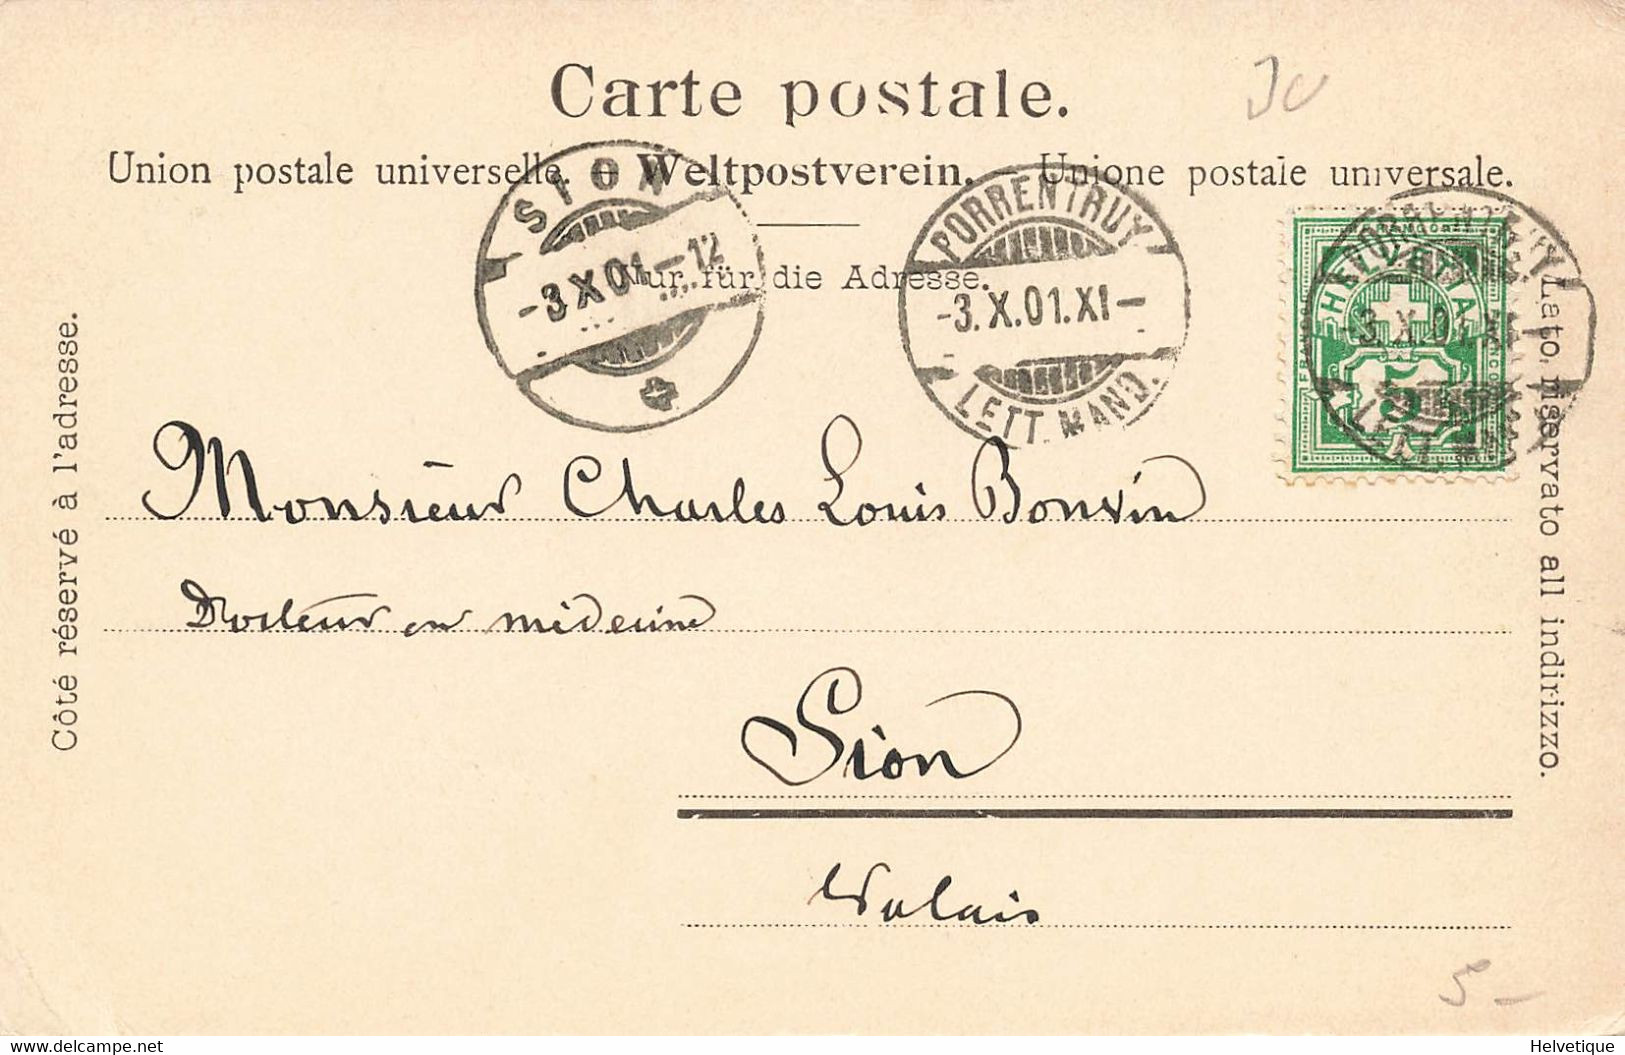 Carte postale.
Union postale universelle. — Weltpostverein. — Unione postale universale.
Nur für die Adresse.
SION
-3.X.01.-12
PORRENTRUY
-3.X.01.XI-
LETT. MAND.
HELVETIA
FRANCO
5
PORRENTRUY
-3.X.01.XI-
LETT. MAND.
Côté réservé à l'adresse.
Lato riservato all indirizzo.
Monsieur Charles Louis Bonvin
Docteur en médecine
Sion
Valais
5-
delcampe.net
Helvetique